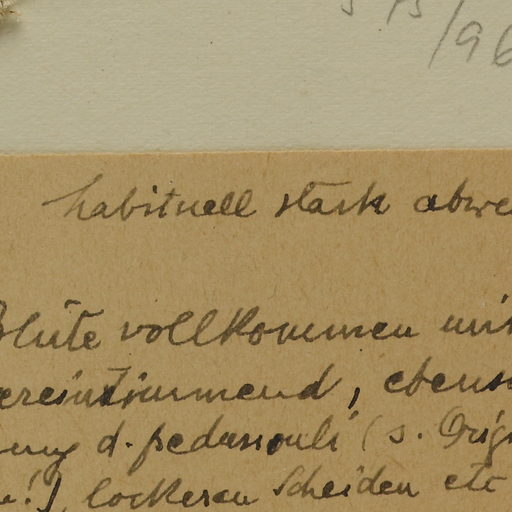 /96
habituell stark abwe
Blüte vollkommen mit
ereinstimmend, ebens
ung d. pedunculi (s. Orig
!), lockeren Scheiden etc